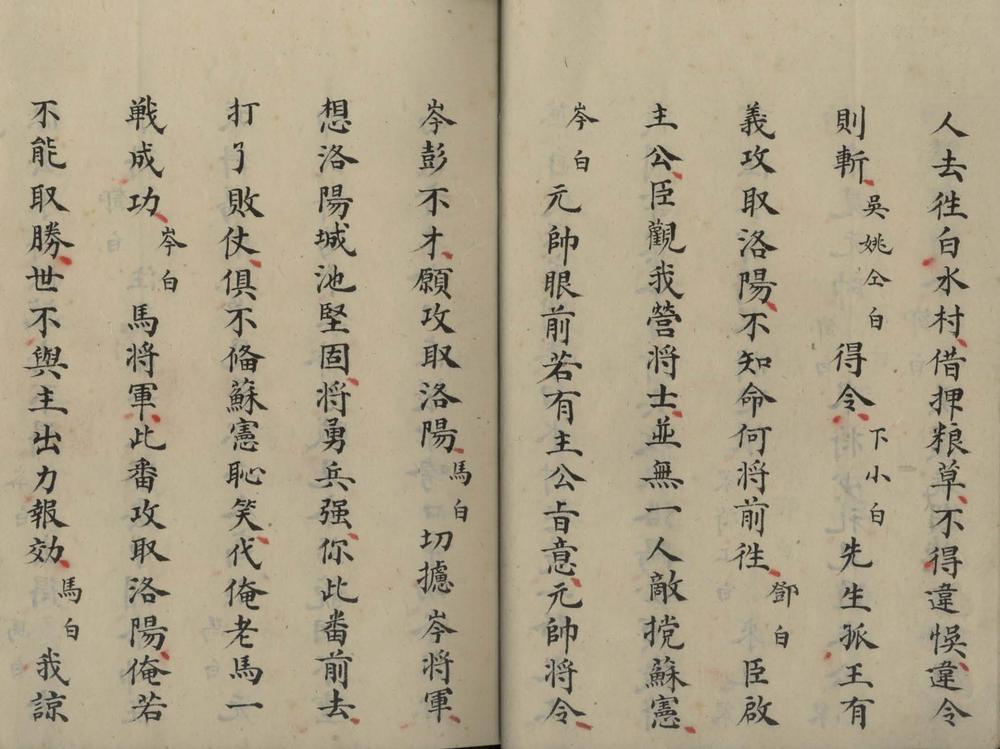 人去徃白水村借押粮草不得違悞違令
則斬吳姚仝白得令下小白先生孤王有
義攻取洛陽不知命何將前徃鄧白臣啟
主公臣觀我營將士並無一人敵擋蘇憲
岑白元帥眼前若有主公旨意元帥將令
岑彭不才願攻取洛陽馬白切攄岑將軍
想洛陽城池堅固將勇兵强你此番前去
打了敗仗俱不俻蘇憲恥笑代俺老馬一
戦成功岑白馬將軍此番攻取洛陽俺若
不能取勝世不與主出力報効馬白我諒